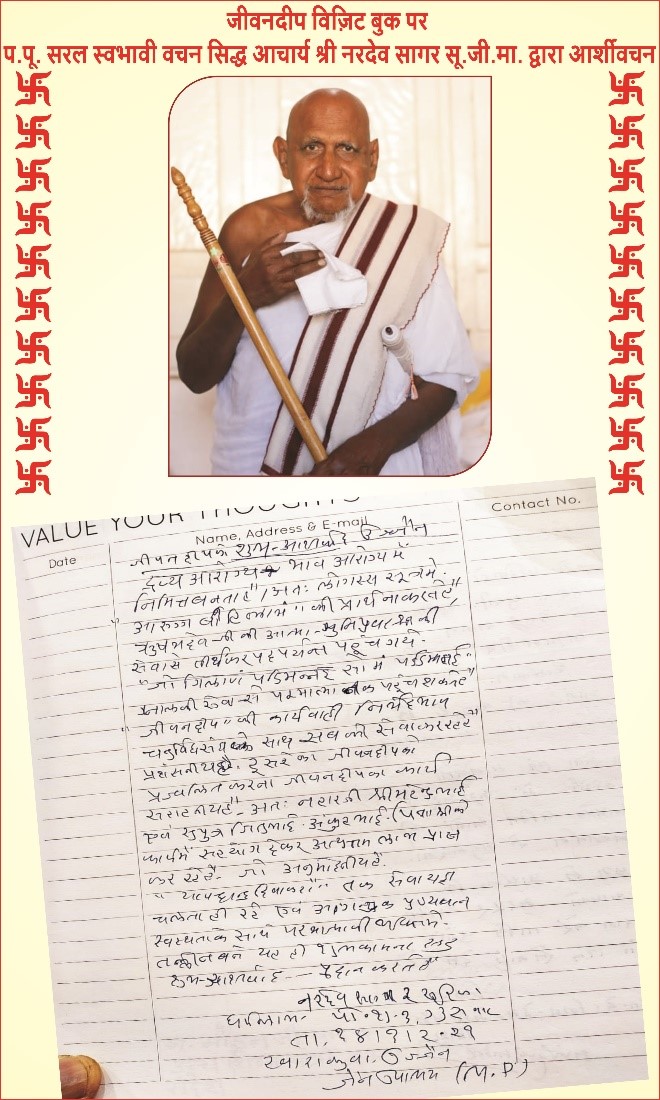 जीवनदीप विज़िट बुक पर
प.पू. सरल स्वभावी वचन सिद्ध आचार्य श्री नरदेव सागर सू.जी.मा. द्वारा आर्शीवचन
VALUE YOUR THOUGHTS
Date
Name, Address & E-mail
Contact No.
जीवनदीपके शुभ-आशीर्वाद उज्जैन
द्रव्य आरोग्य भाव आरोग्य में
निमित्त बनता है" अतः लोगस्स सूत्रमें
की प्रार्थना करते है
ऋषभदेव जी की आत्मा की
सेवासे तीर्थंकर पद पर्यन्त पहुंच गये.
"जो गिलाणं पडिमन्नई सो मं पडिमन्नई"
सेवा से परमात्मा तक पहुंच शकते है
"जीवनदीप" की कार्यवाही
चतुर्विधसंघके साथ सब की सेवा कर रहे है
प्रशंसनीय है. दूसरे का जीवनदीपका
प्रज्वलित करना जीवनदीपका कार्य
सराहनीय है" अतः श्री महेन्द्रभाई
एवं सुपुत्र
कार्यमें सहयोग देकर लाभ प्राप्त
कर रहे है. जो अनुमोदनीय है.
"यावच्चंद्र दिवाकरौ" तक सेवा यज्ञ
चलता ही रहे एवं
स्वस्थताके साथ परमात्माकी भक्तिमें
तल्लीन बने यह ही शुभकामना सह
शुभ-आशीर्वाद --- प्रदान करते है"
नरदेव सागर सूरि
ता. १४।१।२०२१
खाराकुवा. उज्जैन
जैन उपाश्रय (M.P)